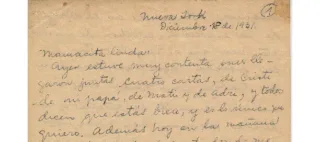 Nueva York
Diciembre 8 de 1931
Mamacita linda:
Ayer estuve muy contenta pues lle-
garon juntas cuatro cartas, de Cristi
de mi papá, de Mati y de Adri, y todos
dicen que estás bien, y es lo único que
quiero. Además hoy en la mañana